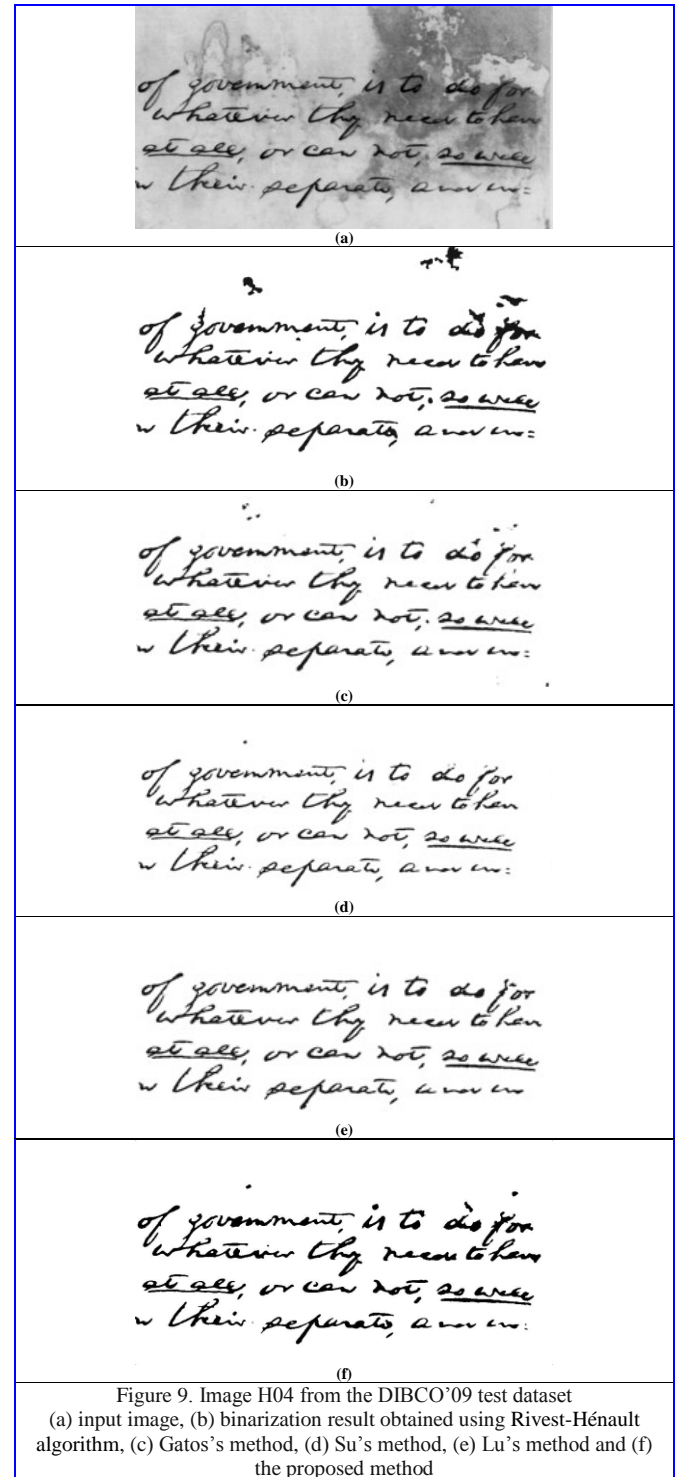 of government, is to do for
whatever they need to have
at all, or can not, so well
their separate, and in=
(a)
of government, is to do for
whatever they need to have
at all, or can not, so well
their separate, and in=
(b)
of government, is to do for
whatever they need to have
at all, or can not, so well
their separate, and in=
(c)
of government, is to do for
whatever they need to have
at all, or can not, so well
their separate, and in=
(d)
of government, is to do for
whatever they need to have
at all, or can not, so well
their separate, and in
(e)
of government, is to do for
whatever they need to have
at all, or can not, so well
their separate, and in:
(f)
Figure 9. Image H04 from the DIBCO’09 test dataset
(a) input image, (b) binarization result obtained using Rivest-Hénault
algorithm, (c) Gatos’s method, (d) Su’s method, (e) Lu’s method and (f)
the proposed method